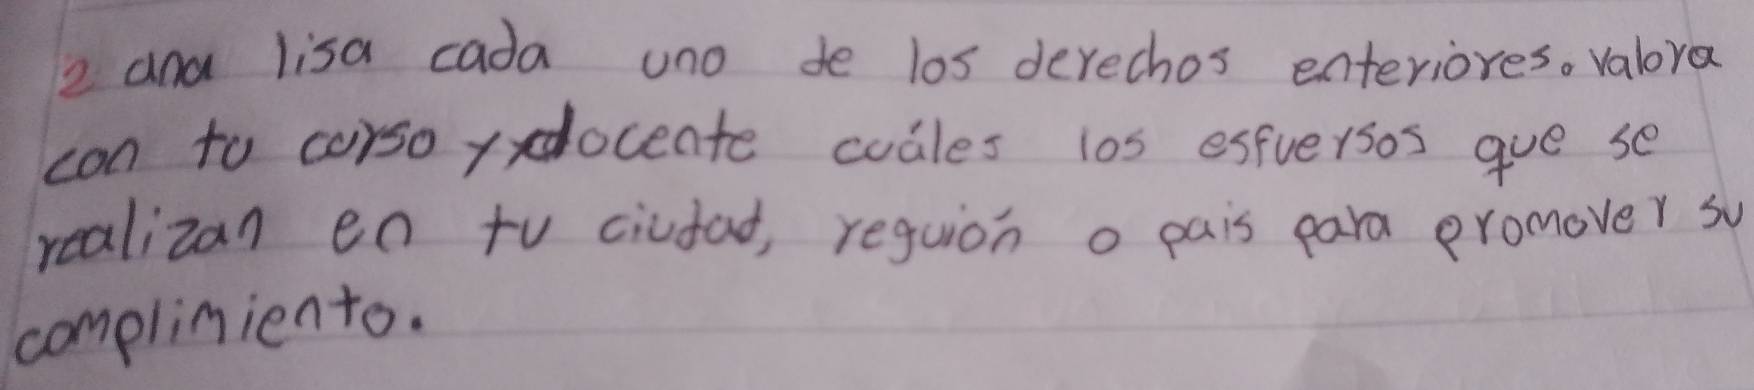 2 ana lisa cada uno de los derechos enteriores. valora
con tu curso y docente cuáles los esfuersos que se
realizan en tu ciudad, reguión o pais para promover su
complimiento.